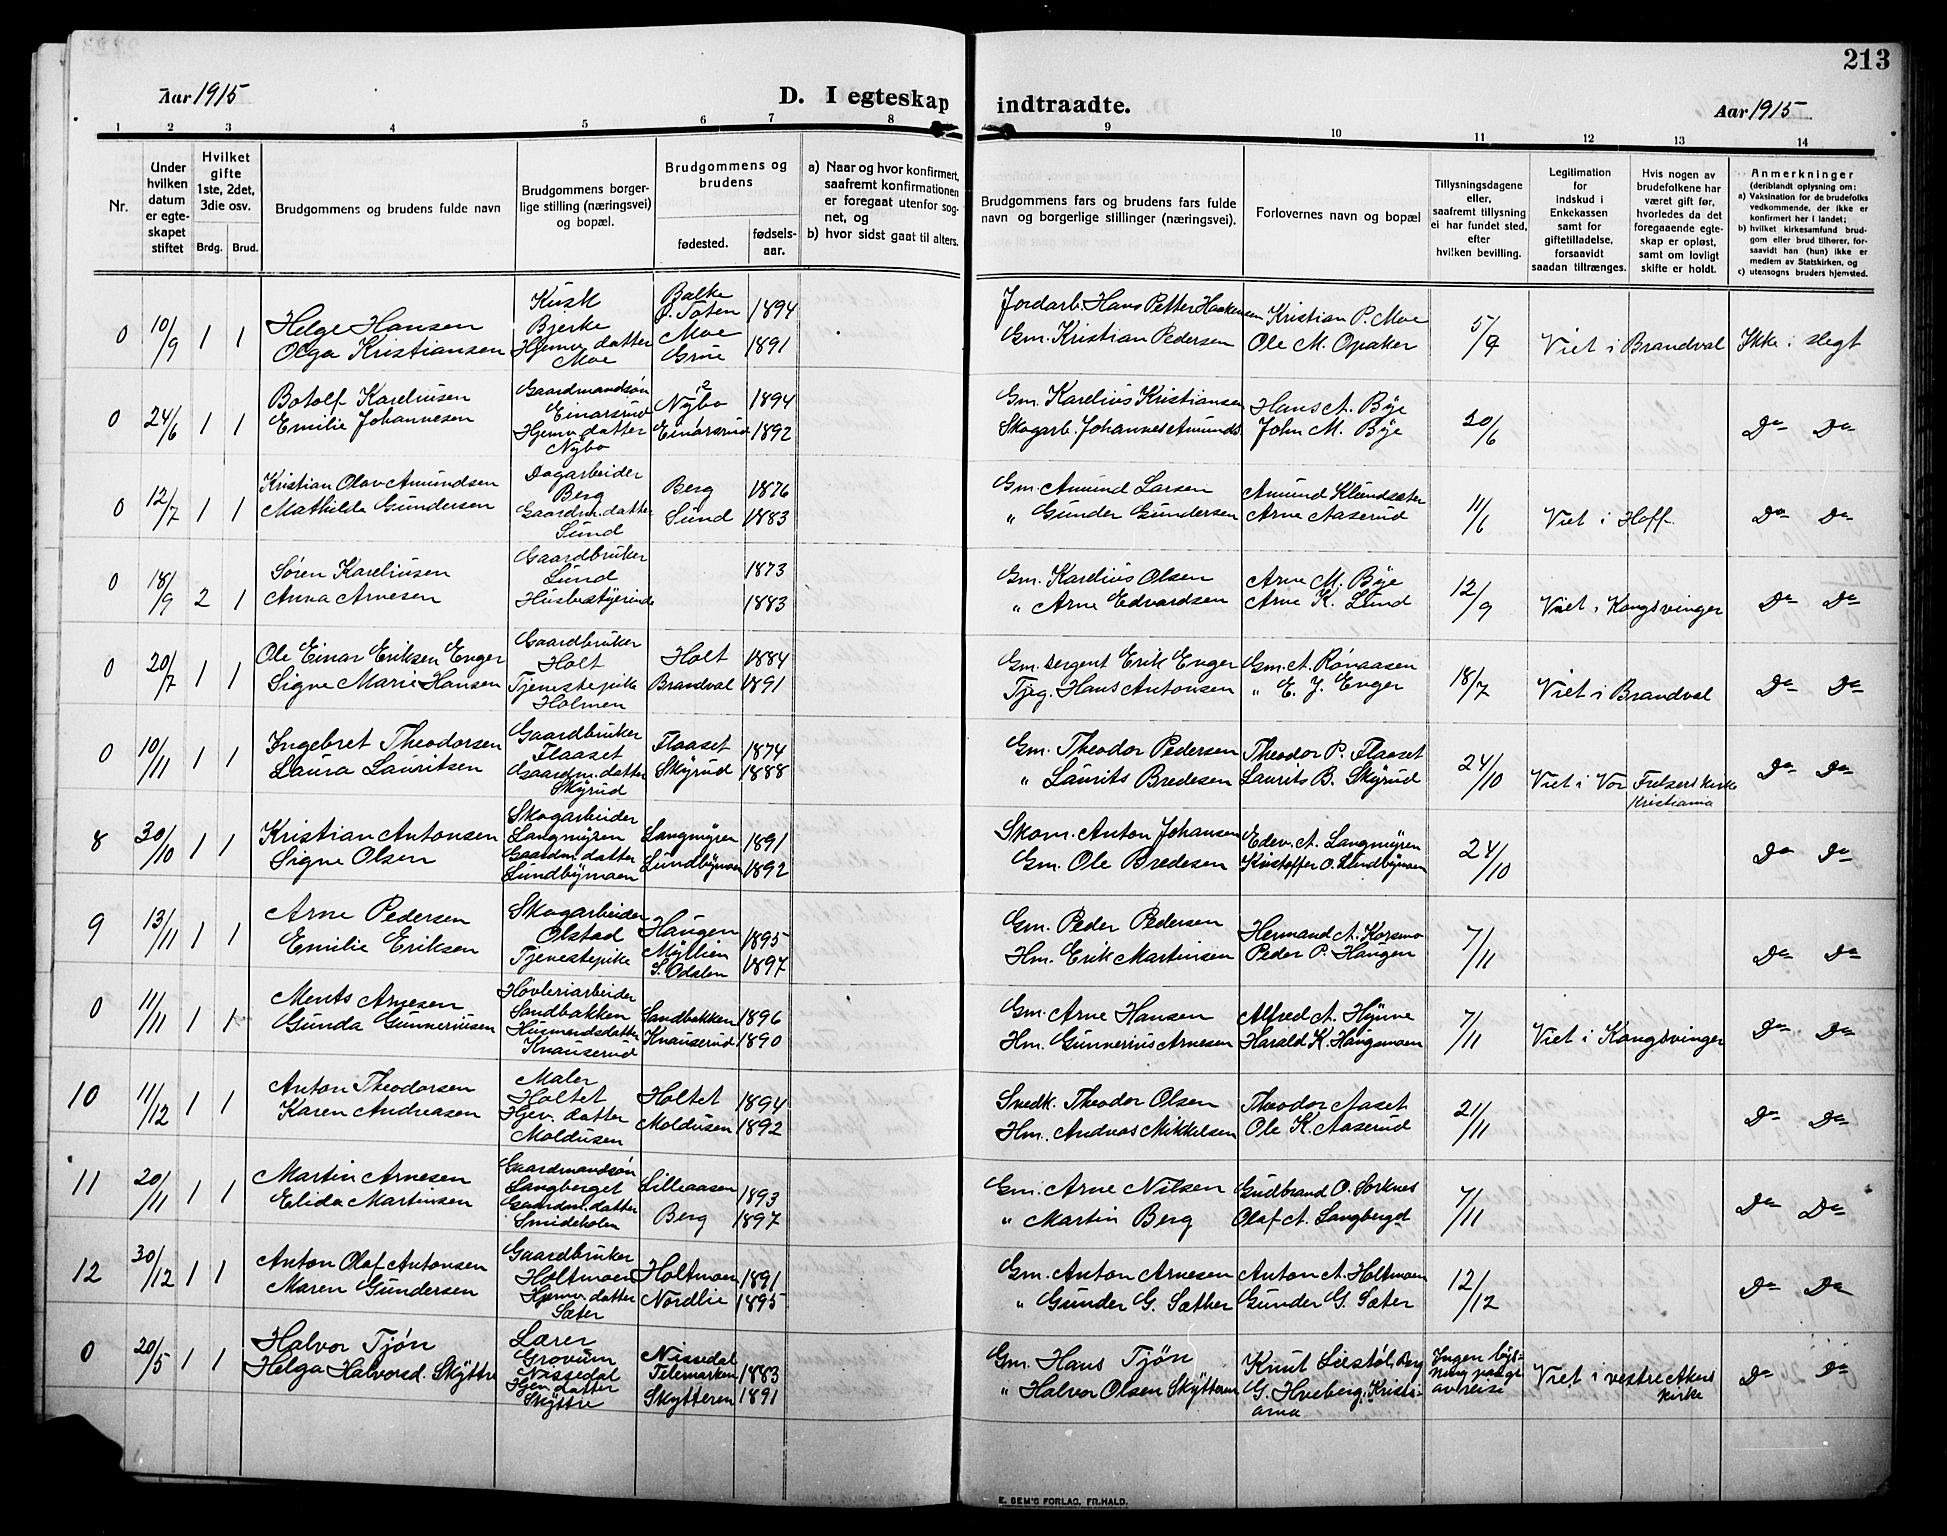 213
Aar 1915
D. I egteskap indtraadte.
Aar 1915
1 2 3 4 5 6 7 8 9 10 11 12 13 14
Nr.
Under hvilken datum er egteskapet stiftet
Hvilket gifte 1ste, 2det, 3die osv.
Brdg. Brud.
Brudgommens og brudens fulde navn
Brudgommens borgerlige stilling (næringsvei) og bopæl.
Brudgommens og brudens
fødested.
fødselsaar.
a) Naar og hvor konfirmert, saafremt konfirmationen er foregaat utenfor sognet, og
b) hvor sidst gaat til alters.
Brudgommens fars og brudens fars fulde navn og borgerlige stillinger (næringsvei).
Forlovernes navn og bopæl
Tillysningsdagene eller, saafremt tillysning ei har fundet sted, efter hvilken bevilling.
Legitimation for indskud i Enkekassen samt for giftetilladelse, forsaavidt saadan tiltrænges.
Hvis nogen av brudefolkene har været gift før, hvorledes da det foregaaende egteskap er opløst, samt om lovligt skifte er holdt.
Anmerkninger
(deriblandt oplysning om:
a) Vaksination for de brudefolks vedkommende, der ikke er konfirmert her i landet;
b) hvilket kirkesamfund brudgom eller brud tilhører, forsaavidt han (hun) ikke er medlem av Statskirken, og
c) utensogns bruders hjemsted.
0 10/9 1 1
Helge Hansen
Olga Kristiansen
Kusk
Bjerke
Hjemv. datter
Moe
Balke
Ø. Toten 1894
Moe
Grue 1891
Jordarb. Hans Petter Haakensen
Gm. Kristian Pedersen
Kristian P. Moe
Ole M. Opaker
5/9 Viet i Brandval Ikke i slegt
0 24/6 1 1
Botolf Kareliusen
Emilie Johannesen
Gaardmandsøn
Einarsrud
Hjemv. datter
Nybo
Nybo 1894
Einarsrud 1892
Gm. Karelius Kristiansen
Skogarb. Johannes Amunds.
Hans A. Bye
John M. Bye
20/6 Do Do
0 12/7 1 1
Kristian Olav Amundsen
Mathilde Gundersen
Dagarbeider
Berg
Gaardm. datter
Lund
Berg 1876
Lund 1883
Gm. Amund Larsen
" Gunder Gundersen
Amund Klundsæter
Arne Aaserud
11/6 Viet i Hoff. Do Do
0 18/9 2 1
Søren Kareliusen
Anna Arnesen
Gaardbruker
Lund
Husbestyerinde
1873
1883
Gm. Karelius Olsen
" Arne Edvardsen
Arne M. Bye
Arne K. Lund
12/9 Viet i Kongsvinger Do Do
0 20/7 1 1
Ole Einar Eriksen Enger
Signe Marie Hansen
Gaardbruker
Holt
Tjenestepike
Holmen
Holt 1884
Brandval 1891
Gm. sergent Erik Enger
Tjeg. Hans Antonsen
Gm. A. Rønaasen
" E. J. Enger
18/7 Viet i Brandval Do Do
0 10/11 1 1
Ingebret Theodorsen
Laura Lauritsen
Gaardbruker
Flaaset
Gaardm. datter
Skyrud
Flaaset 1874
Skyrud 1888
Gm. Theodor Pedersen
" Laurits Bredesen
Theodor P. Flaaset
Laurits B. Skyrud
24/10 Viet i Vor Frelsers kirke
Kristiania
Do Do
8 30/10 1 1
Kristian Antonsen
Signe Olsen
Skogarbeider
Langmyren
Gaardm. datter
Lundbymoen
Langmyren 1891
Lundbymoen 1892
Skom. Anton Johansen
Gm. Ole Bredesen
Edev. A. Langmyren
Kristoffer O. Lundbymoen
24/10 Do Do
9 13/11 1 1
Arne Pedersen
Emilie Eriksen
Skogarbeider
Olstad
Tjenestepike
Haugen 1895
Myllien
S. Odalen 1897
Gm. Peder Pedersen
Hm. Erik Martinsen
Hermand A. Korsmo
Peder P. Haugen
7/11 Do Do
0 11/11 1 1
Ments Arnesen
Gunda Gunneriusen
Høvleriarbeider
Sandbakken
Husmandsdatter
Knauserud
Sandbakken 1896
Knauserud 1890
Gm. Arne Hansen
Hm. Gunnerius Arnesen
Alfred A. Hynne
Harald K. Haugsmoen
7/11 Viet i Kongsvinger Do Do
10 11/12 1 1
Anton Theodorsen
Karen Andreasen
Maler
Holtet
Hjev. datter
Moldusen
Holtet 1894
Moldusen 1892
Snedk. Theodor Olsen
Hm. Andreas Mikkelsen
Theodor Aaset
Ole K. Aaserud
21/11 Do Do
11 20/11 1 1
Martin Arnesen
Elida Martinsen
Gaardmandsøn
Langberget
Gaardm. datter
Smideholm
Lilleaasen 1893
Berg 1897
Gm. Arne Nilsen
" Martin Berg
Gudbrand O. Sorknes
Olaf A. Langberget
7/11 Do Do
12 30/12 1 1
Anton Olaf Antonsen
Maren Gundersen
Gaardbruker
Holtmoen
Hjemv. datter
Sæter
Holtmoen 1891
Nordlie 1895
Gm. Anton Arnesen
" Gunder G. Sæther
Anton A. Holtmoen
Gunder G. Sæter
12/12 Do Do
0 20/5 1 1
Halvor Tjøn
Helga Halvorsd. Skyttre
Lærer
Grovum
Nissedal
Hjem. datter
Skyttre
Nissedal
Telemarken 1883
Skytteren 1891
Gm. Hans Tjøn
" Halvor Olsen Skytteren
Knut Liestøl, Berg
G. Hveberg, Kristiania
Ingen lysning paagr. avreise
Viet i vestre Akers
kirke
Do Do
E. SEM'S FORLAG, FR.HALD.